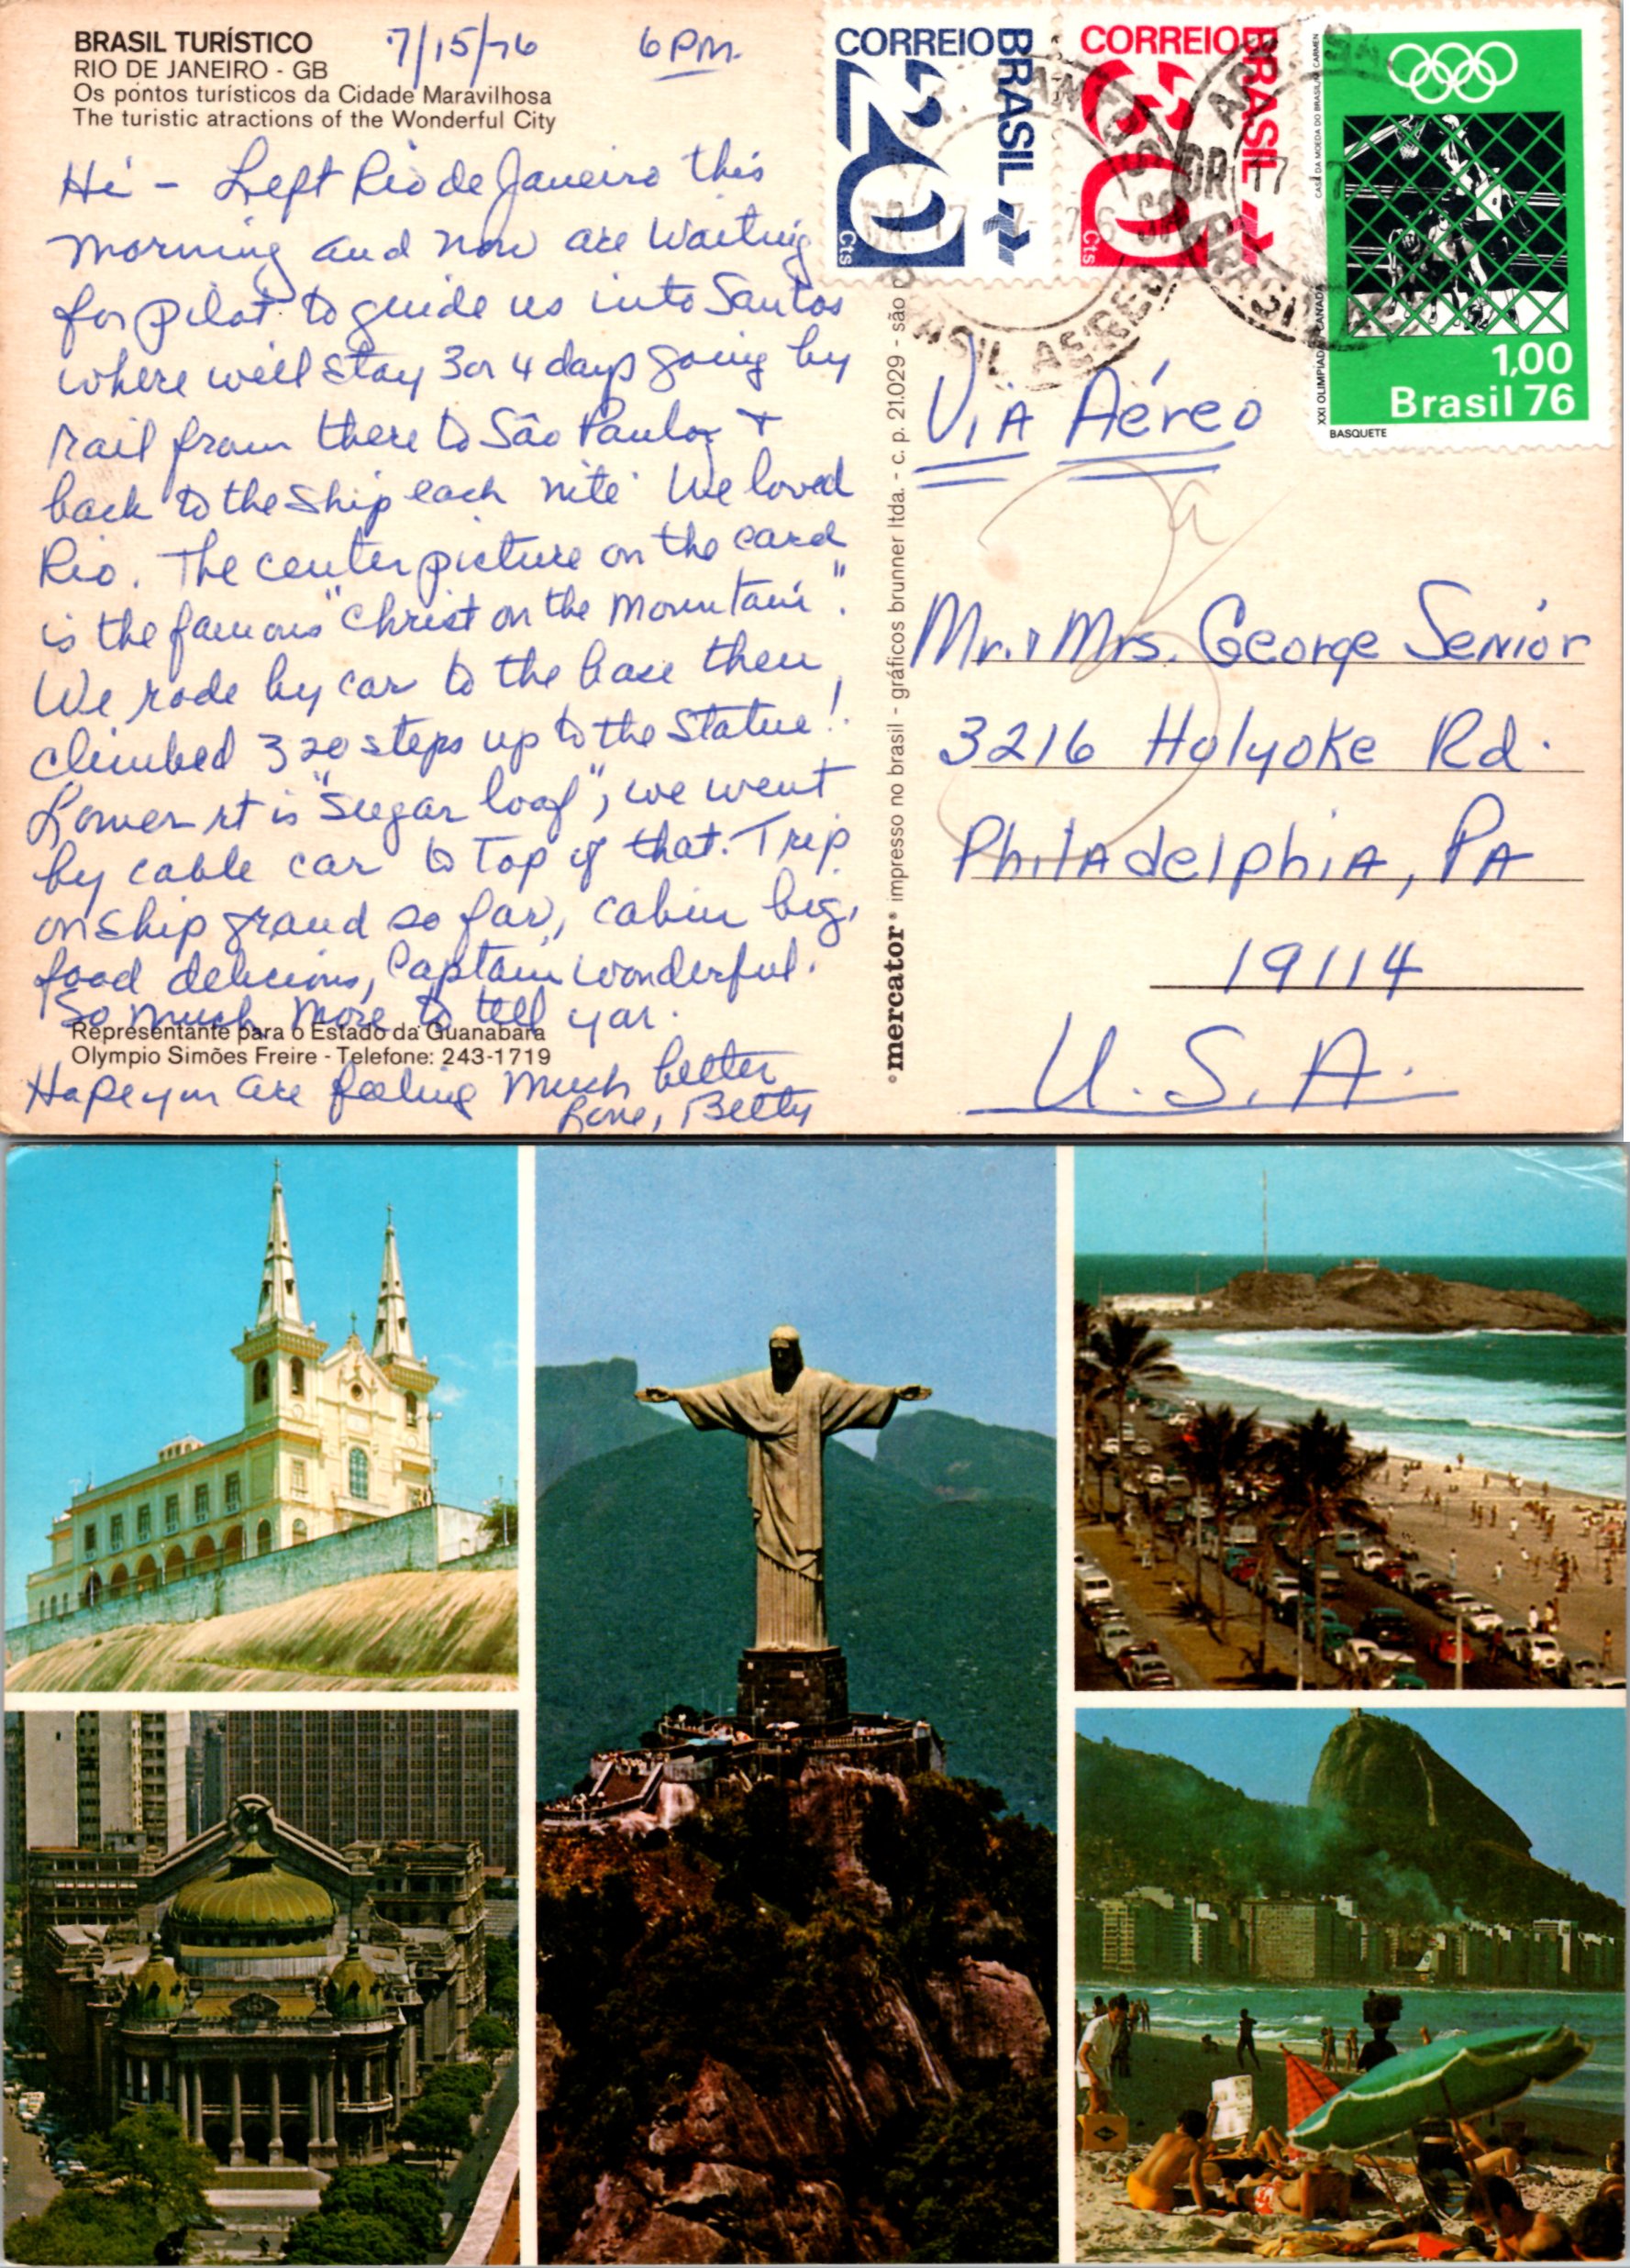 BRASIL TURÍSTICO
RIO DE JANEIRO - GB
Os pontos turísticos da Cidade Maravilhosa
The turistic atractions of the Wonderful City
7/15/76 6 PM.
Hi - Left Rio de Janeiro this
morning and now are waiting
for pilot to guide us into Santos
where will stay 3 or 4 days going by
rail from there to São Paulo, +
back to the ship each nite. We loved
Rio. The center picture on the card
is the famous "Christ on the Mountain".
We rode by car to the base then
climbed 320 steps up to the Statue!
Lower rt is "Sugar loaf", we went
by cable car to top of that. Trip
on ship grand so far, cabin big,
food delicious, Captain wonderful.
So much more to tell you.
Representante para o Estado da Guanabara
Olympio Simões Freire - Telefone: 243-1719
Hope you are feeling much better
Love, Betty
mercator impresso no brasil - gráficos brunner ltda. - c. p. 21.029 - são p
CORREIO BRASIL
20 Cts
CORREIO BRASIL
60 Cts
CASA DA MOEDA DO BRASIL/ CARMEN
XXI OLIMPIADA - CANADA
1,00
Brasil 76
BASQUETE
SANTOS
17 7 76
BRASIL
Via Aéreo
Mr. & Mrs. George Senior
3216 Holyoke Rd.
Philadelphia, PA
19114
U.S.A.